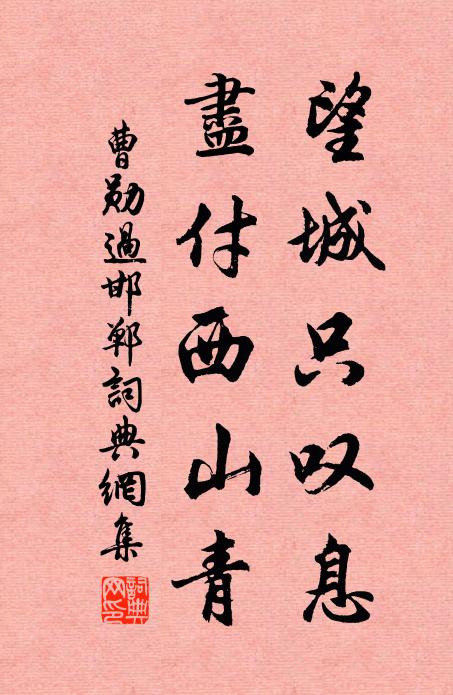 望城只叹息
盡付西山青
曹勛過邯鄲詞典網集
詞典
网印